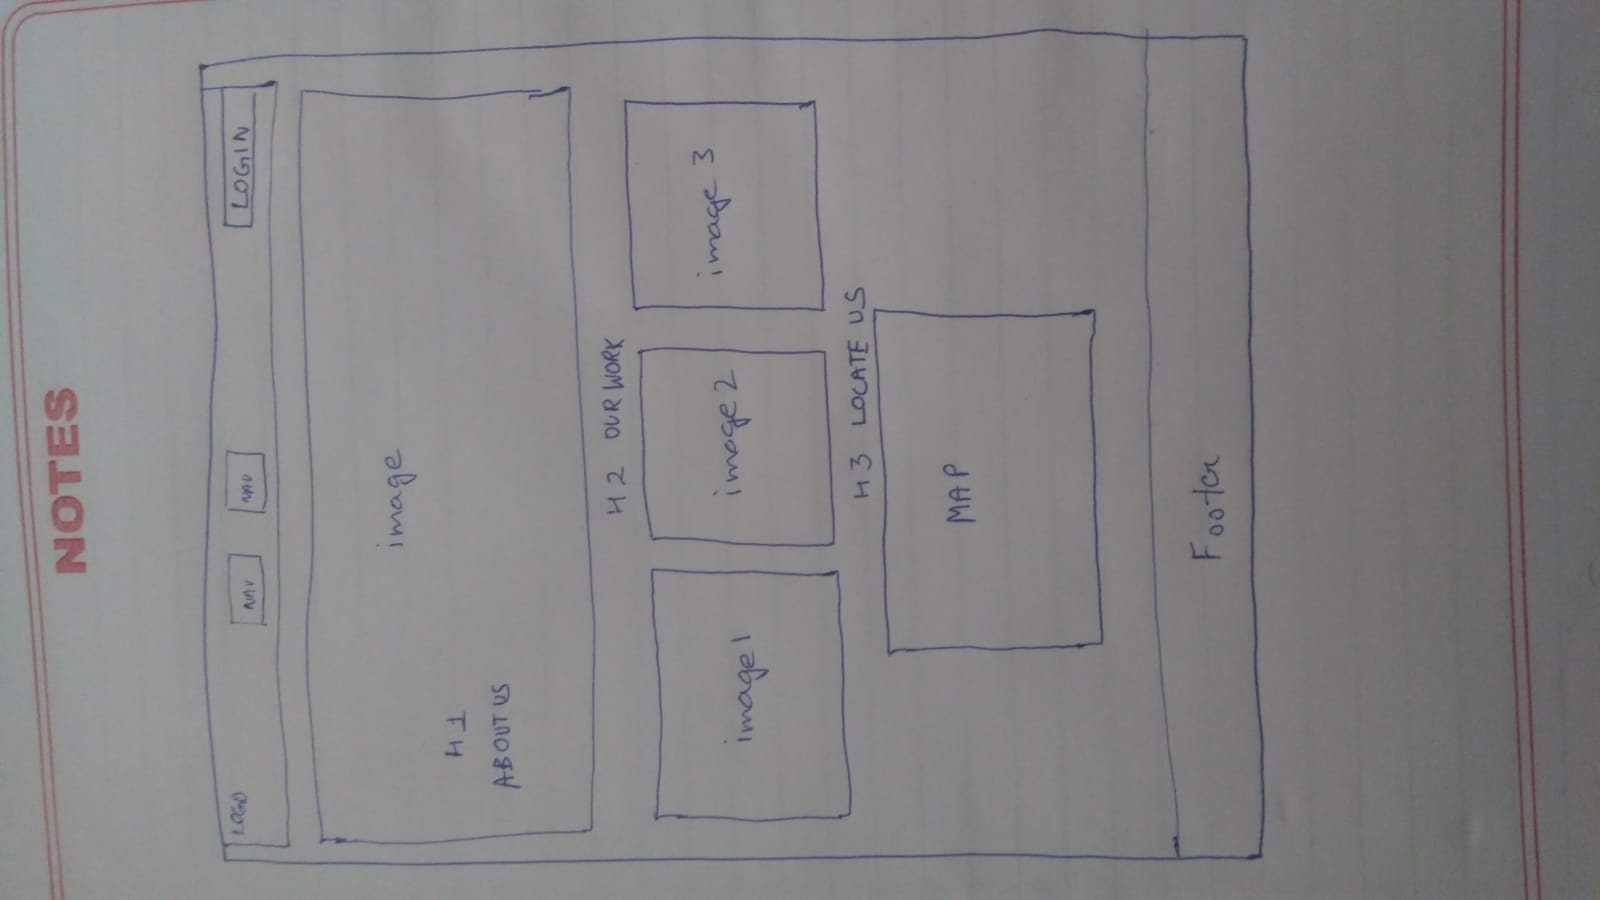 NOTES
LOGO
NAV
NAV
LOGIN
image
H1
ABOUT US
H2 OUR WORK
image1
image2
image 3
H3 LOCATE US
MAP
Footer